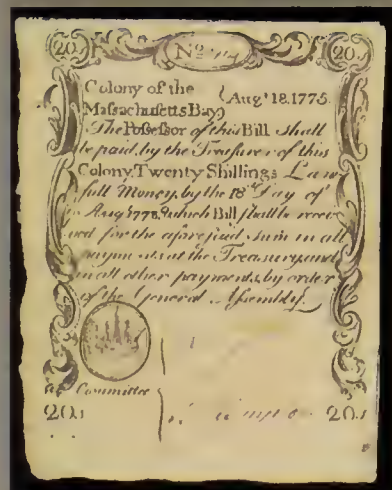 20s No 20s
Colony of the
Massachusetts Bay } Augt 18.1775.
The Possessor of this Bill shall
be paid, by the Treasurer of this
Colony, Twenty Shillings Law
full Money, by the 18th Day of
Augt 1778, which Bill shall be recei
ved for the aforesaid Sum in all
payments, at the Treasury, and
in all other payments, by order
of the General Assembly.
Committee
20s 20s